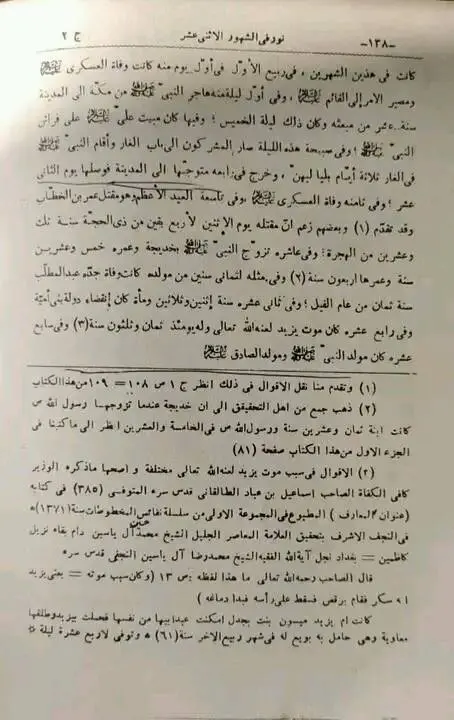 -١٣٨- نور فى الشهور الاثنى عشر ج ٢
كانت فى هذين الشهرين ، فى ربيع الأوّل فى أوّل يوم منه كانت وفاة العسكرى ﷺ
ومصير الامر إلى القائم ﷺ ، وفى أوّل ليلة منه هاجر النبىّ ﷺ من مكّة الى المدينة
سنة عشر من مبعثه وكان ذلك ليلة الخميس ؛ وفيها كان مبيت علىّ ﷺ على فراش
النبىّ ﷺ ؛ وفى صبيحة هذه الليلة صار المشركون الى باب الغار وأقام النبىّ ﷺ
فى الغار ثلاثة أيّام بلياليهنّ ، وخرج فى رابعه متوجّها الى المدينة فوصلها يوم الثانى
عشر ؛ وفى ثامنه وفاة العسكرى ﷺ ،وفى تاسعه العيد الأعظم وهو مقتل عمر بن الخطّاب
وقد تقدّم (١) وبعضهم زعم انّ مقتله يوم الاثنين لأربع بقين من ذى الحجّة سنة ثلث
وعشرين من الهجرة؛ وفى عاشره تزوّج النبىّ ﷺ بخديجة وعمره خمس وعشرين
سنة وعمرها اربعون سنة(٢) وفى مثله لثمانى سنين من مولده كانت وفاة جدّه عبدالمطّلب
سنة ثمان من عام الفيل ؛ وفى ثانى عشره سنة إثنين وثلاثين ومأة كان إنقضاء دولة بنى أميّة
وفى رابع عشره كان موت يزيد لعنه الله تعالى وله يومئذ ثمان وثلثون سنة(٣) وفى سابع
عشره كان مولد النبىّ ﷺ ومولد الصادق ﷺ
(١) وتقدم منا نقل الاقوال فى ذلك انظر ج ١ ص ١٠٨ = ١٠٩ من هذا الكتاب
(٢) ذهب جمع من اهل التحقيق الى ان خديجة عندما تزوجها رسول الله ص
كانت ابنة ثمان وعشرين سنة ورسول الله ص فى الخامسة والعشرين انظر الى ما كتبنا فى
الجزء الاول من هذا الكتاب صفحة (٨١)
(٢) الاقوال فى سبب موت يزيد لعنه الله تعالى مختلفة و اصحها ما ذكره الوزير
كافى الكفاة الصاحب اسماعيل بن عباد الطالقانى قدس سره المتوفى (٣٨٥) فى كتابه
(عنوان المعارف ) المطبوع فى المجموعة الاولى من سلسلة نفائس المخطوطات سنة (١٣٧١)ه
فى النجف الاشرف بتحقيق العلامة المعاصر الجليل الشيخ محمد حسن آل ياسين دام بقاه نزيل
كاظمين = بغداد نجل آية الله الفقيه الشيخ محمدرضا آل ياسين النجفى قدس سره
قال الصاحب رحمه الله تعالى ما هذا لفظه ص ١٣ (وكان سبب موته = يعنى يزيد
انه سكر فقام يرقص فسقط على رأسه فبدا دماغه )
كانت ام يزيد ميسون بنت بجدل امكنت عبد ابيها من نفسها فحملت بيزيد وطلقها
معاوية وهى حامل به بويع له فى شهر ربيع الاخر سنة (٦١) ه وتوفى لاربع عشرة ليلة